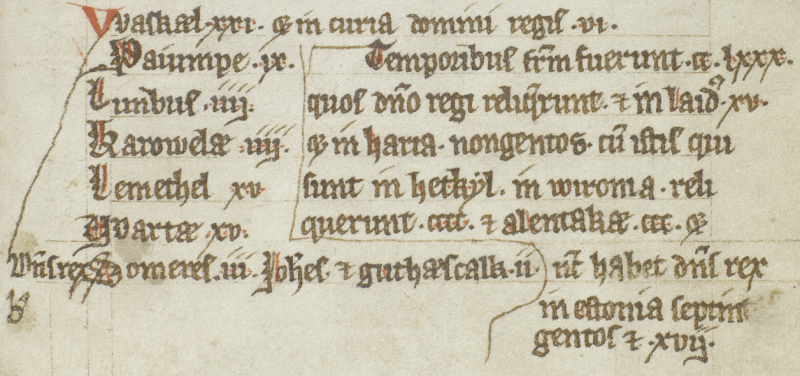 Uvaskæl .xxi. & in curia domini regis .vi.
Paiumpe .ix.
Lunbus .iiij.
Karowelæ .iiij.
Lemethel xv
Uvartæ .xv.
Vn̄s rex Someres .iii. Joh̄es . & guthæscalk .ii.
Temporibus fr̄m fuerunt .cc. lxxx.
quos dn̄o regi reliq̄runt . & in laid᷒ .xv.
& in haria . nongentos . cū istis qui
sunt in hetkyl . in wironia . reli
querunt .cccc. & alentakæ .ccc. &
ut̄ habet dn̄s rex
in estonia septin
gentos & .xvij.